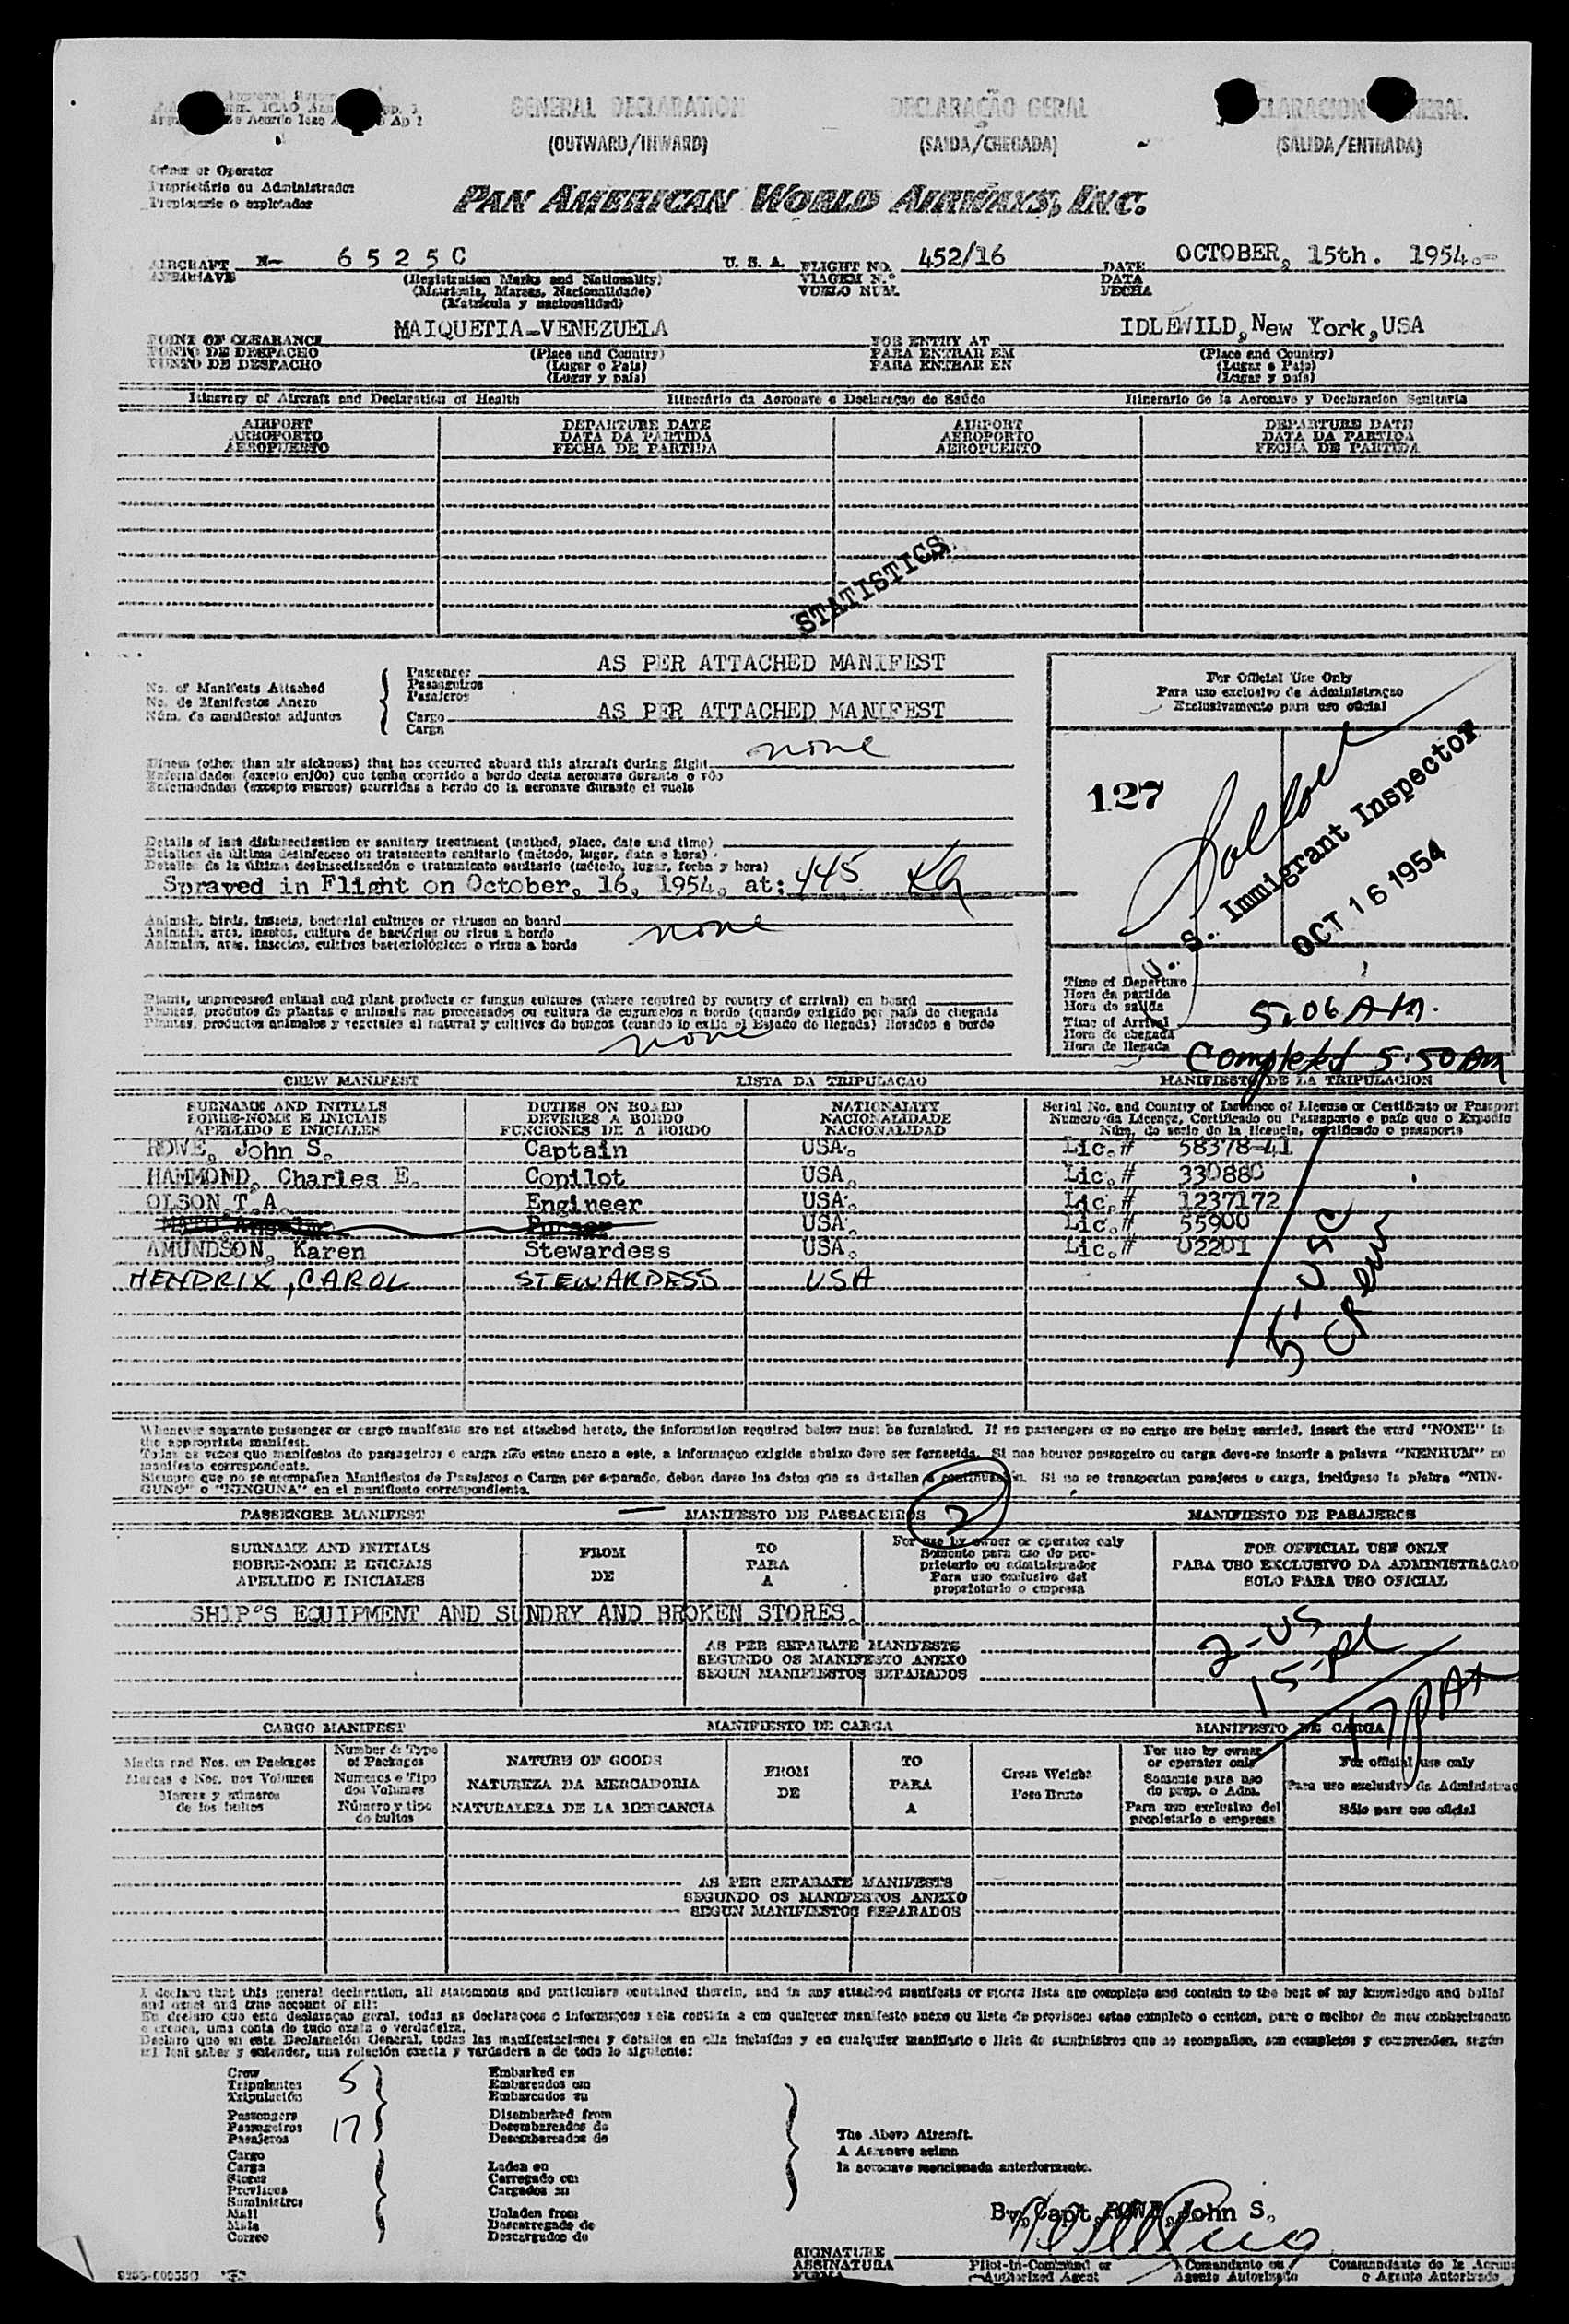 GENERAL DECLARATION
(OUTWARD/INWARD)
DECLARAÇÃO GERAL
(SAIDA/CHEGADA)
(SALIDA/ENTRADA)
Owner or Operator
Proprietário ou Administrador
Propietario o explotador
PAN AMERICAN WORLD AIRWAYS, INC.
AIRCRAFT N- 6525C U. S. A. FLIGHT NO. 452/16 DATE OCTOBER, 15th. 1954.-
AERONAVE (Registration Marks and Nationality) VIAGEM N.º DATA
(Matricula, Marcas, Nacionalidade) VUELO NUM. FECHA
(Matrícula y nacionalidad)
POINT OF CLEARANCE MAIQUETIA-VENEZUELA FOR ENTRY AT IDLEWILD, New York, USA
PONTO DE DESPACHO (Place and Country) PARA ENTRAR EM (Place and Country)
PUNTO DE DESPACHO (Lugar o Pais) PARA ENTRAR EN (Lugar o Pais)
(Lugar y país) (Lugar y país)
Itinerary of Aircraft and Declaration of Health Itinerário da Aeronave e Declaraçao de Saúde Itinerario de la Aeronave y Declaracion Sanitaria
AIRPORT DEPARTURE DATE AIRPORT DEPARTURE DATE
AEROPORTO DATA DA PARTIDA AEROPORTO DATA DA PARTIDA
AEROPUERTO FECHA DE PARTIDA AEROPUERTO FECHA DE PARTIDA
STATISTICS
No. of Manifests Attached
No. de Manifestos Anexo
Núm. de manifiestos adjuntos
Passenger AS PER ATTACHED MANIFEST
Passageiros
Pasajeros
Cargo AS PER ATTACHED MANIFEST
Carga
For Official Use Only
Para uso exclusivo de Administraçao
Exclusivamente para uso oficial
127
U. S. Immigrant Inspector
OCT 16 1954
Illness (other than air sickness) that has occurred aboard this aircraft during flight none
Enfermidades (exceto enjôo) que tenha ocorrido a bordo desta aeronave durante o vôo
Enfermedades (excepto mareos) ocurridas a bordo de la aeronave durante el vuelo
Details of last disinsectization or sanitary treatment (method, place, date and time)
Detalhes da ultima desinfeccao ou tratamento sanitario (método, lugar, data e hora)
Detalles de la última desinsectización o tratamiento sanitario (método, lugar, fecha y hora)
Sprayed in Flight on October, 16, 1954, at: 445
Animals, birds, insects, bacterial cultures or viruses on board none
Animais, aves, insetos, cultura de bactérias ou virus a bordo
Animales, aves, insectos, cultivos bacteriológicos o virus a bordo
Plants, unprocessed animal and plant products or fungus cultures (where required by country of arrival) on board
Plantas, produtos de plantas e animais nao processados ou cultura de cogumelos a bordo (quando exigido por pais de chegada
Plantas, productos animales y vegetales al natural y cultivos de hongos (cuando lo exija el Estado de llegada) llevados a bordo
none
Time of Departure
Hora da partida
Hora de salida
Time of Arrival 5:06 AM.
Hora de chegada
Hora de llegada
Completed 5:50 AM
CREW MANIFEST LISTA DA TRIPULACAO MANIFIESTO DE LA TRIPULACION
SURNAME AND INITIALS DUTIES ON BOARD NATIONALITY Serial No. and Country of Issuance of License or Certificate or Passport
SOBRE-NOME E INICIAIS DEVERES A BORDO NACIONALIDADE Numero da Licença, Certificado ou Passaporte e pais que o Expedio
APELLIDO E INICIALES FUNCIONES DE A BORDO NACIONALIDAD Núm. de serie de la licencia, certificado o pasaporte
ROWE, John S. Captain USA. Lic.# 58378-41
HAMMOND, Charles E. Copilot USA. Lic.# 330880
OLSON,T.A. Engineer USA. Lic.# 1237172
Purser USA. Lic.# 55900
AMUNDSON, Karen Stewardess USA. Lic.# U2201
HENDRIX, CAROL STEWARDESS USA
5-USC
CREW
Whenever separate passenger or cargo manifests are not attached hereto, the information required below must be furnished. If no passengers or no cargo are being carried, insert the word "NONE" in
the appropriate manifest.
Todas as vezes que manifestos de passageiros o carga não estao anexo a este, a informaçao exigida abaixo deve ser fornecida. Si nao houver passageiro ou carga deve-se inserir a palavra "NENHUM" no
manifesto correspondente.
Siempre que no se acompañen Manifiestos de Pasajeros o Carga por separado, deben darse los datos que se detallan a continuación. Si no se transportan pasajeros o carga, inclúyase la plabra "NIN-
GUNO" o "NINGUNA" en el manifiesto correspondiente.
2
PASSENGER MANIFEST MANIFESTO DE PASSAGEIROS MANIFIESTO DE PASAJEROS
SURNAME AND INITIALS FROM TO For use by owner or operator only FOR OFFICIAL USE ONLY
SOBRE-NOME E INICIAIS DE PARA Somente para uso do pro- PARA USO EXCLUSIVO DA ADMINISTRACAO
APELLIDO E INICIALES A prietario ou administrador SOLO PARA USO OFICIAL
Para uso exclusivo del
propietario o empresa
SHIP'S EQUIPMENT AND SUNDRY AND BROKEN STORES.
AS PER SEPARATE MANIFESTS
SEGUNDO OS MANIFESTO ANEXO
SEGUN MANIFIESTOS SEPARADOS
2-US
15-
17 PAX
CARGO MANIFEST MANIFIESTO DE CARGA MANIFESTO DE CARGA
Marks and Nos. on Packages Number & Type of Packages NATURE OF GOODS FROM TO Gross Weight For use by owner or operator only For official use only
Marcas e Nos. nos Volumes Numeros e Tipo dos Volumes NATUREZA DA MERCADORIA DE PARA Peso Bruto Somente para uso do prop. o Adm. Para uso exclusivo da Administrac
Marcas y números de los bultos Número y tipo de bultos NATURALEZA DE LA MERCANCIA A Para uso exclusivo del propietario o empresa Sólo para uso oficial
AS PER SEPARATE MANIFESTS
SEGUNDO OS MANIFESTOS ANEXO
SEGUN MANIFIESTOS SEPARADOS
I declare that this general declaration, all statements and particulars contained therein, and in any attached manifests or stores lists are complete and contain to the best of my knowledge and belief
and exact and true account of all:
Eu declaro que esta declaraçao geral, todas as declaraçoes e informaçoes nela contida e em qualquer manifesto anexo ou lista de provisoes estao completo e contem, para o melhor do meu conhecimento
e crenca, uma conta de tudo exata e verdadeira.
Declaro que en esta Declaración General, todas las manifestaciones y detalles en ella incluídos y en cualquier manifiesto o lista de suministros que se acompañen, son completos y comprenden, según
mi leal saber y entender, una relación exacta y verdadera a de todo lo siguiente:
Crew
Tripulantes 5
Tripulación
Passengers
Passageiros 17
Pasajeros
Cargo
Carga
Stores
Provisoes
Suministros
Mail
Mala
Correo
Embarked on
Embarcados em
Embarcados en
Disembarked from
Desembarcados de
Desembarcados de
Laden on
Carregado em
Cargados en
Unladen from
Descarregado de
Descargados de
The Above Aircraft.
A Aeronave acima
la aeronave mencionada anteriormente.
By, Capt, ROWE, John S.
SIGNATURE
ASSINATURA
FIRMA
Pilot-in-Command or Comandante ou Commandante de la Aeron
Authorized Agent Agente Autorizado o Agente Autorizado